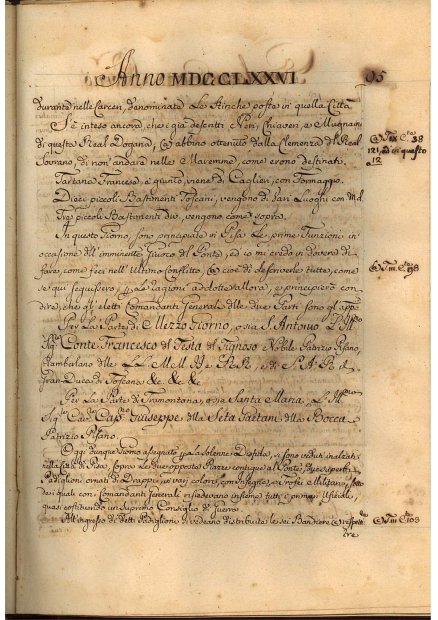 Anno MDCCLXXVI 95
durante nelle Carceri, denominate Le Stinche poste in quella Città
S'è inteso ancora, che i già descritti Neri, Chiaveri, e Mugnaini
di questa Real Dogana, abbino ottenuto dalla Clemenza del Real
Sovrano, di non andare nelle Maremme, come erono destinati.
Tartana Francese è giunta, viene di Caglieri, con Formaggio.
Dieci piccoli Bastimenti Toscani, vengono di Vari Luoghi con
Tre piccoli Bastimenti vengono come sopra.
In questo Giorno, sono principiate in Pisa Le prime Funzioni in
occasione dell'imminente Giuoco del Ponte, ed io mi credo in dovere di
fare, come feci nell'Ultimo Conflitto, cioè di descriverle tutte, come
se qui seguissero, Le Ragioni addotte allora, e principierò con
dire, che gl'eletti Comandanti Generali delle due Parti sono gl'appo
Per La Parte di Mezzo Giorno, o sia S. Antonio
Conte Francesco del Testa del Tignoso Nobile Patrizio Pisano,
Ciamberlano delle LL. MM. e di S. A. R. il
Gran-Duca di Toscana &c. &c. &c.
Per La Parte di Tramontana, o sia Santa Maria,
Giuseppe della Seta Gaetani della Bocca
Patrizio Pisano.
Oggi dunque Giorno assegnato La Solenne Disfida, si sono veduti inalzati
nella Città di Pisa, sopra Le due opposte Piazze contigue al Ponte, superbi
Padiglioni ornati di Drappi vari colori, con Insegne, e Trofei Militari, sotto
dei quali con i Comandanti Generali risiedevano insieme tutti i primari Ufiziali,
quasi costituendo un Supremo Consiglio di Guerra.
All'ingresso di detti Padiglioni si vedeano distribuite Le sei Bandiere
38
121, ed in questo
a 12
98
103